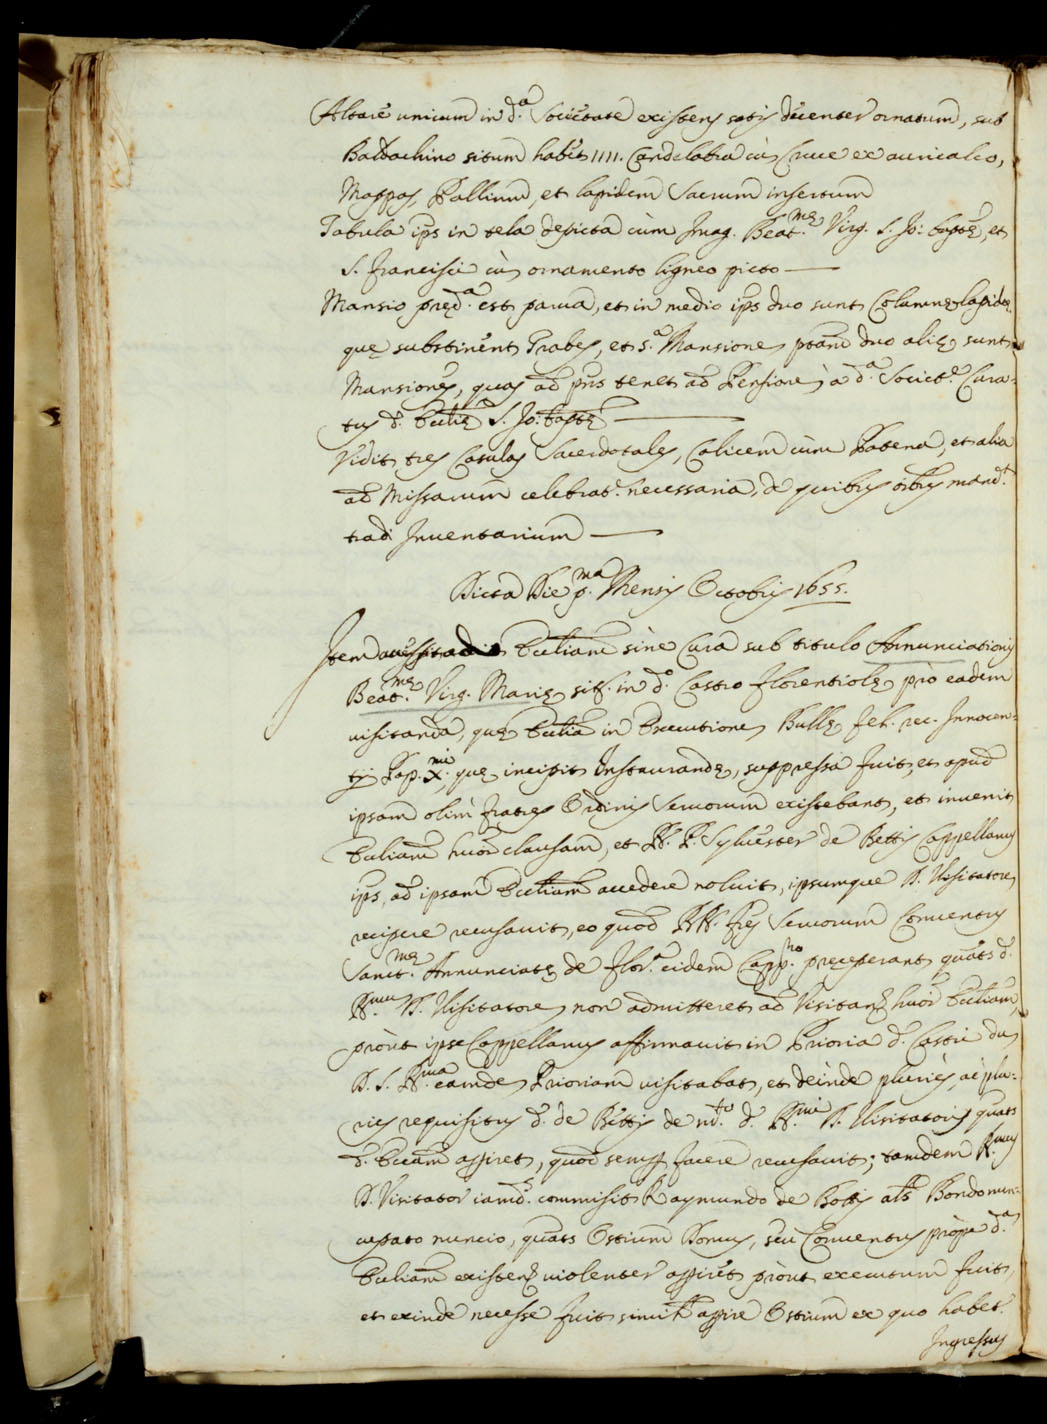 Altare unicum in d.ª Societate existens satis decenter ornatum, sub
Baldachino situm habet IIII. Candelabra cù Cruce ex auricalco,
Mappas Pallium, et lapidem Sacrum insertum
Tabula ips in tela depicta cùm Imag. Beat.mę Virg. S. Jo: baptę, et
S. Francisci cù ornamento ligneo picto —
Mansio pręd.ª est parua, et in medio ips duo sunt Columnę lapidę
quę substinent Trabes, et s.ª Mansionem ptam duo alię sunt
Mansiones, quas ad pns tenet ad Pensionè à d.ª Societ.e Cura-
tus d. Ecclię S. Jo: baptę —
Vidit tres Casulas Sacerdotales, Calicem cùm Patena, et alia
ad Missarum celebrat. necessaria, de quibus oibus mand.t
tradi Inuentarium —
Dicta Die p.ma Mensis Octobris 1655.
Item Eccliam sine Cura sub titulo Annunciationis
Beat.mę Virg. Marię sit. in d.º Castro Florentiolę prò eadem
visitanda, quę Ecclia in Executionem Bullę fel. rec. Innocen-
tij Pap. X.mi quę incipit Instaurandę, suppressa fuit, et apud
ipsam olim fratres Ordinis Seruorum existebant, et inuenit
Eccliam huiõi clausam, et R. P. Syluester de Bettis Cappellanus
ips, ad ipsam Eccliam accedere noluit, ipsumque D. Visitatorem
recipere recusauit, eo quod RR. fres Seruorum Conuentus
Sanct.mę Annunciatę de Flor.ª eidem Capp.no pręceperant quats d.
R.mum D. Visitatorem non admitteret ad Visitand huiõi Eccliam,
prout ipse Cappellanus affirmauit in Prioria d. Castri dum
D. S. R.ma eamdem Prioriam visitabat, et deinde pluries, ac plu-
ries requisitus d. de Bettis de m.to d. R.mi D. Visitatoris quats
d. Eccam apiret, quod semp facere recusauit; tamdem R.mus
D. Visitator iamd. commisit Raymundo de Bottis als Bondo nun-
cupato nuncio, quats Ostium Domus, seù Conuentus propè d.ª
Eccliam existen violenter apiret, prout executum fuit,
et exinde necesse fuit simili apire Ostium ex quo habet.
Ingressus